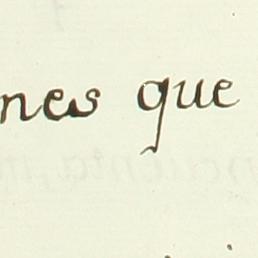 nes que